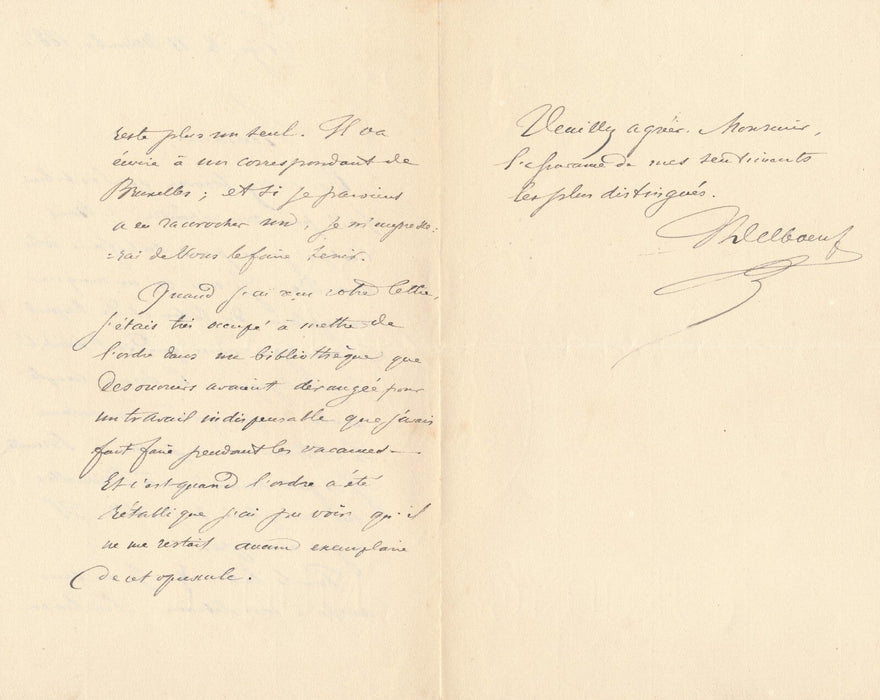 reste plus un seul. Il va
écrire à un correspondant de
Bruxelles ; et si je parviens
à en raccrocher un, je m'empresse=
=rai de vous le faire tenir.
Quand j'ai reçu votre lettre,
j'étais très occupé à mettre de
l'ordre dans ma bibliothèque que
des ouvriers avaient dérangée pour
un travail indispensable que j'avais
fait faire pendant les vacances —
Et c'est quand l'ordre a été
rétabli que j'ai pu voir qu'il
ne me restait aucun exemplaire
de cet opuscule.
Veuillez agréer, Monsieur,
l'assurance de mes sentiments
les plus distingués.
Delboeuf